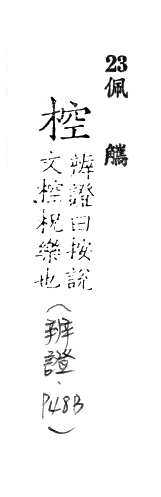 23佩觿
椌
辨證曰按說
文椌柷樂也
（辨證、P48B）